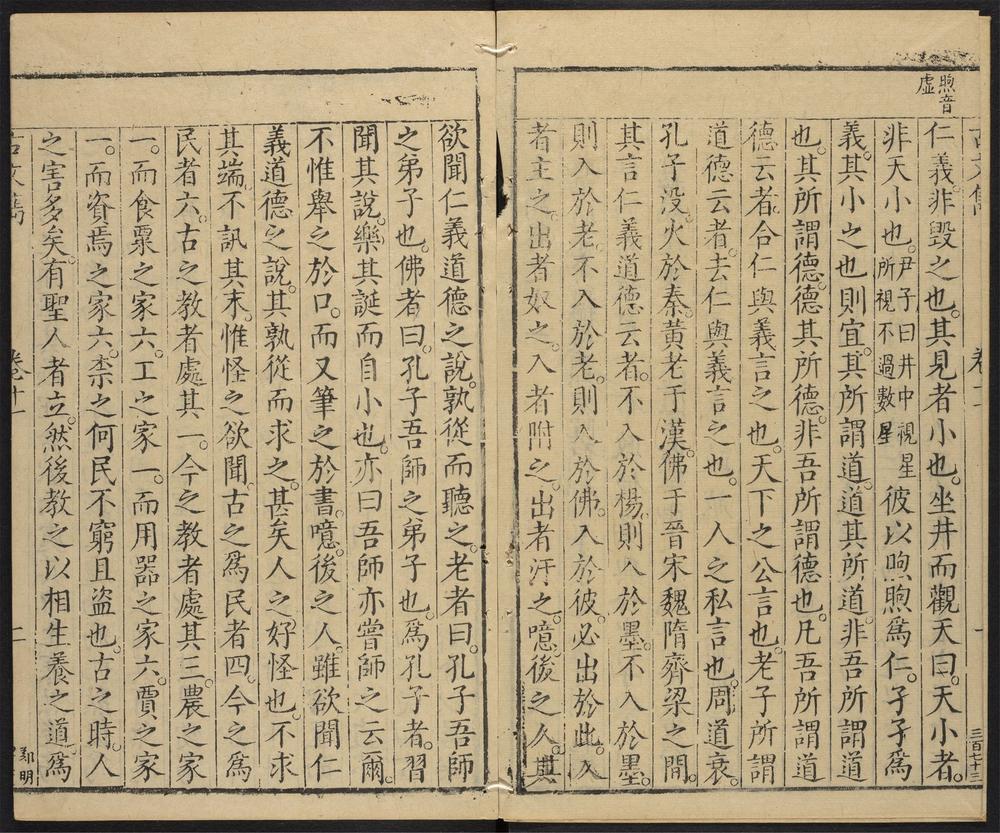 煦音
虛
卷十一
一
三百七十三
仁義。非毀之也。其見者小也。坐井而觀天。曰天小者。
非天小也。尹子曰井中視星所視不過數星彼以煦煦爲仁。孑孑爲
義。其小之也則宜。其所謂道。道其所道。非吾所謂道
也。其所謂德。德其所德。非吾所謂德也。凡吾所謂道
德云者。合仁與義言之也。天下之公言也。老子所謂
道德云者。去仁與義言之也。一人之私言也。周道衰。
孔子没。火於秦。黃老于漢。佛于晉宋魏隋齊梁之閒。
其言仁義道德云者。不入於楊。則入於墨。不入於墨。
則入於老。不入於老。則入於佛。入於彼。必出於此。入
者主之。出者奴之。入者附之。出者汙之。噫。後之人。其
欲聞仁義道德之說。孰從而聽之。老者曰。孔子吾師
之弟子也。佛者曰。孔子吾師之弟子也。爲孔子者。習
聞其說。樂其誕而自小也。亦曰吾師亦嘗師之云爾。
不惟舉之於口。而又筆之於書。噫。後之人。雖欲聞仁
義道德之說。其孰從而求之。甚矣人之好怪也。不求
其端。不訊其末。惟怪之欲聞。古之爲民者四。今之爲
民者六。古之教者處其一。今之教者處其三。農之家
一。而食粟之家六。工之家一。而用器之家六。賈之家
一。而資焉之家六。柰之何民不窮且盗也。古之時。人
之害多矣。有聖人者立。然後教之以相生養之道。爲
卷十一
二
鄭明